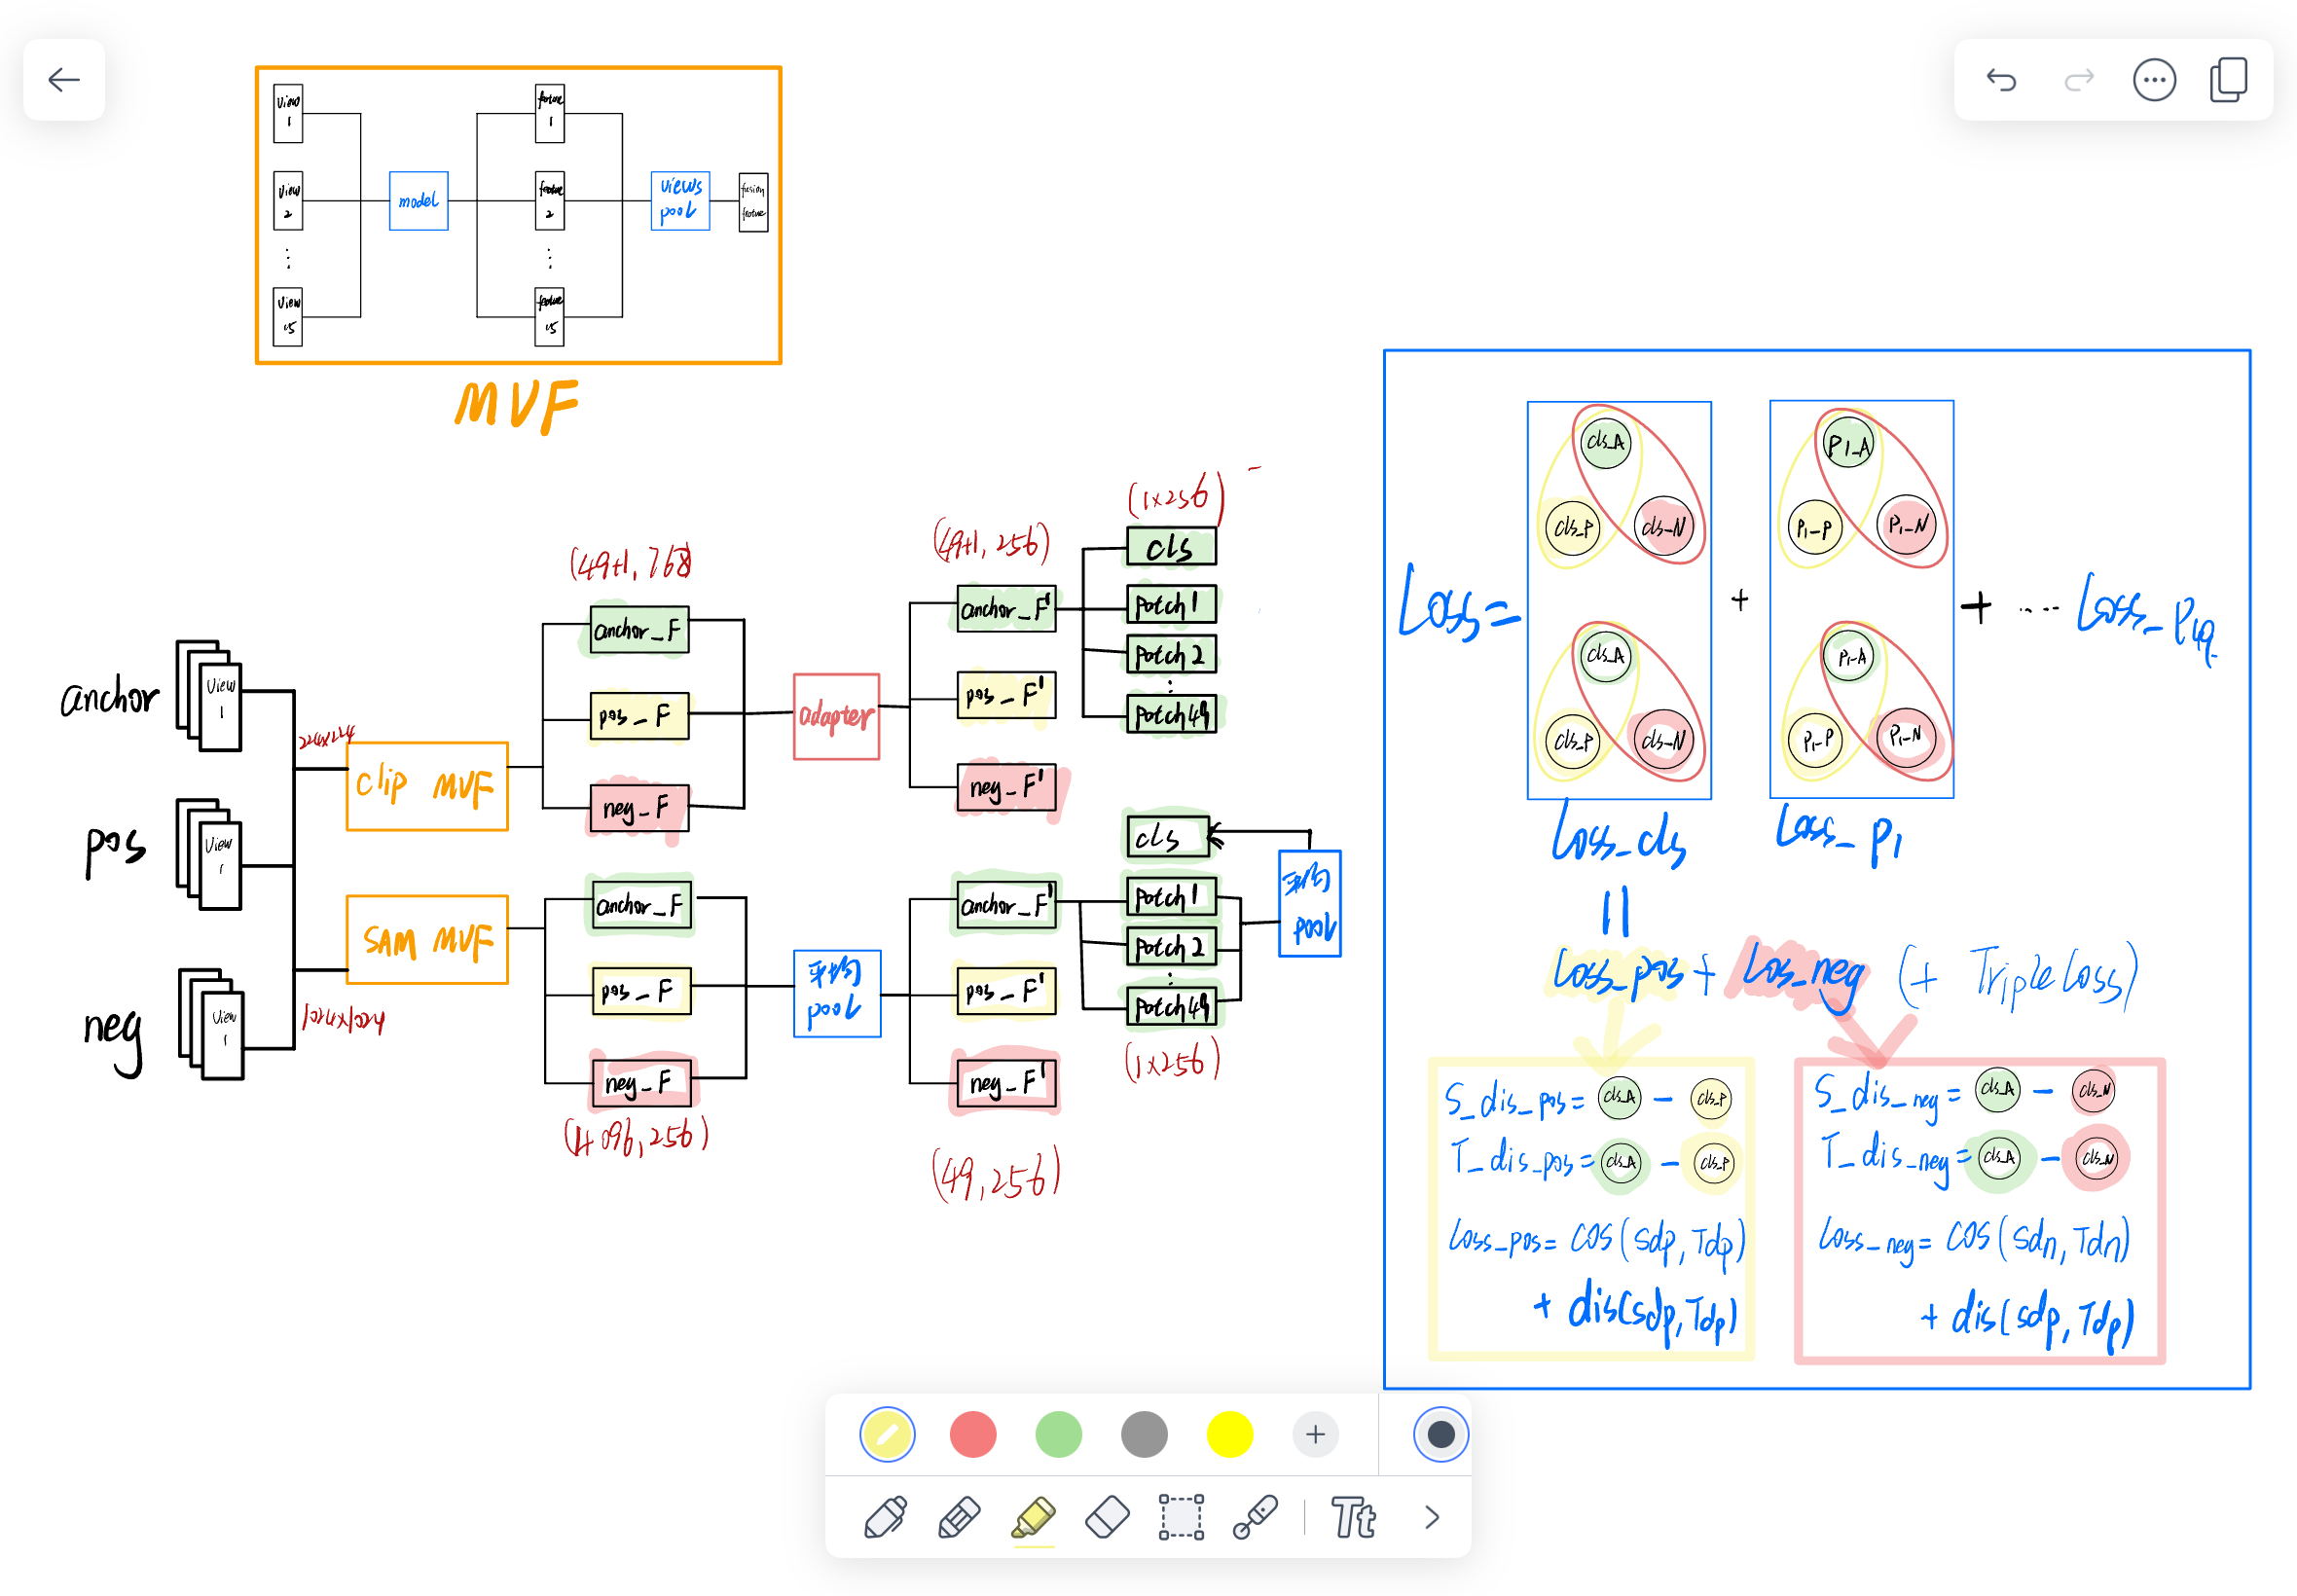 view 1
view 2
⋮
view v5
model
feature 1
feature 2
⋮
feature v5
views pool
fusion feature
MVF
anchor
view 1
pos
view 1
neg
view 1
224x224
1024x1024
clip MVF
SAM MVF
(49+1, 768)
anchor_F
pos_F
neg_F
adapter
(49+1, 256)
anchor_F'
pos_F'
neg_F'
(1x256)
cls
patch 1
patch 2
⋮
patch 49
anchor_F
pos_F
neg_F
(4096, 256)
平均 pool
anchor_F'
pos_F'
neg_F'
(49, 256)
cls
patch 1
patch 2
⋮
patch 49
(1x256)
平均 pool
Loss =
cls_A
cls_P
cls_N
cls_A
cls_P
cls_N
Loss_cls
+
P1_A
P1_P
P1_N
P1_A
P1_P
P1_N
Loss_P1
+ .... Loss_P49
=
Loss_pos + Los_neg (+ Triple Loss)
S_dis_pos = cls_A - cls_P
T_dis_pos = cls_A - cls_P
Loss_pos = cos(sdp, Tdp)
+ dis(sdp, Tdp)
S_dis_neg = cls_A - cls_N
T_dis_neg = cls_A - cls_N
Loss_neg = cos(sdn, Tdn)
+ dis(sdp, Tdp)
Tt